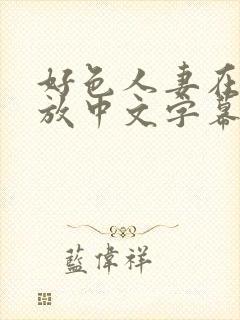 好色人妻在
放中文字幕
藍偉祥